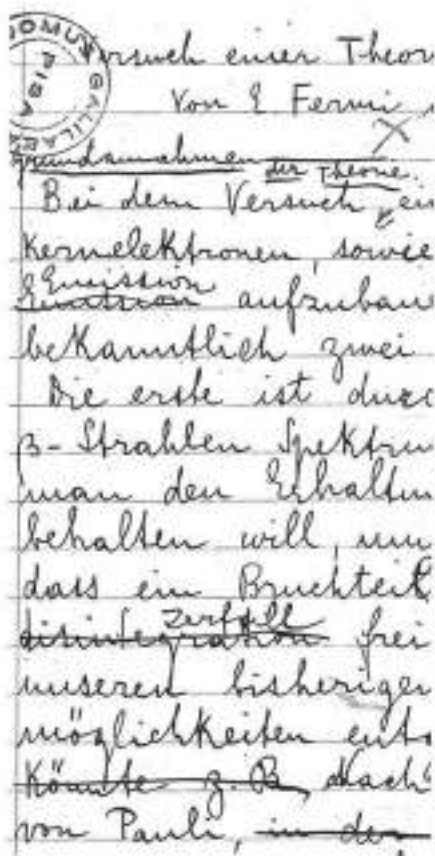 DOMUS GALILAEA PISA
Versuch einer Theor
Von E. Fermi
Grundannahmen der Theorie.
Bei dem Versuch, ein
Kernelektronen, sowie
Emission
Emission aufzubau
bekanntlich zwei
Die erste ist durc
β-Strahlen Spektru
man den Erhaltun
behalten will, mu
dass ein Bruchteil
Zerfall
disintegration frei
unseren bisherigen
möglichkeiten ents
Könnte z.B. Nach
von Pauli, in der